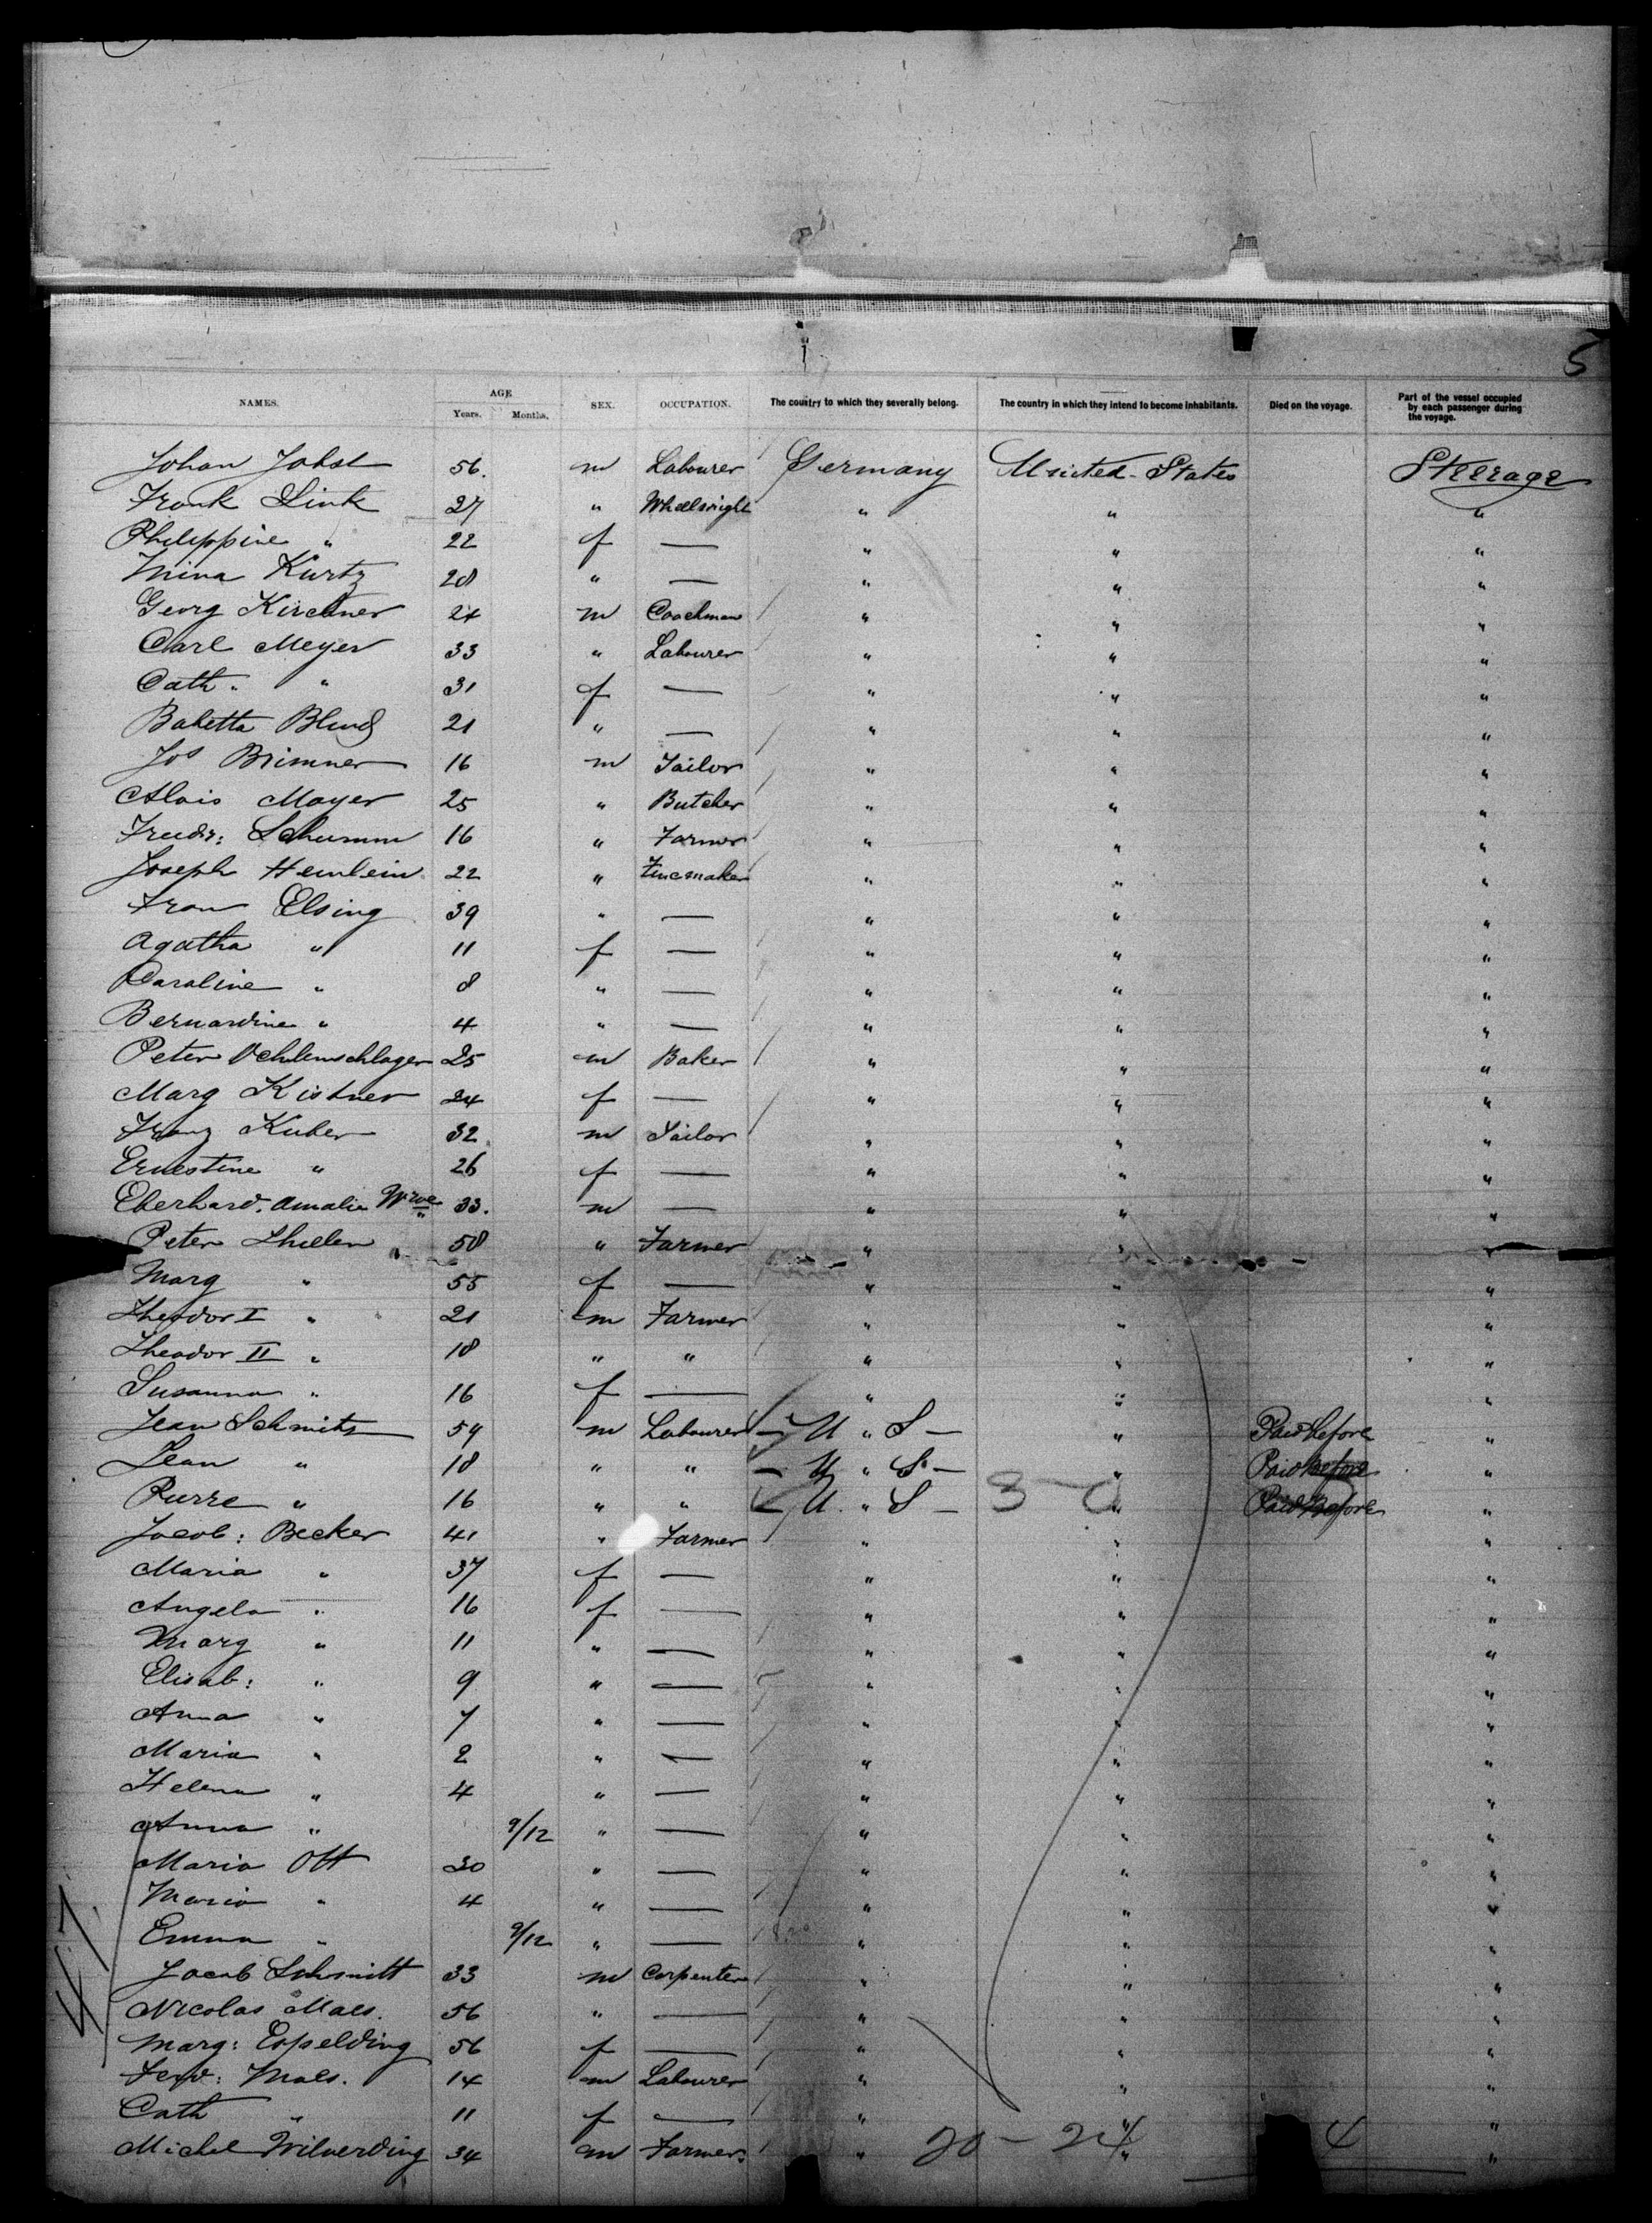 5
NAMES. AGE Years. Months. SEX. OCCUPATION. The country to which they severally belong. The country in which they intend to become inhabitants. Died on the voyage. Part of the vessel occupied by each passenger during the voyage.
Johan Jobst 56. m Labourer Germany United States Steerage
Frank Link 27 " Wheelwright " " "
Philippine " 22 f — " " "
Mina Kurtz 28 " — " " "
Georg Kirchner 24 m Coachman " " "
Carl Meyer 33 " Labourer " " "
Cath. " 31 f — " " "
Babetta 21 " — " " "
Jos Brimner 16 m Tailor " " "
Alois Mayer 25 " Butcher " " "
Friedr: Schumm 16 " Farmer " " "
Joseph Hemlein 22 " " " "
Frau Elsing 39 " — " " "
Agatha " 11 f — " " "
Caroline " 8 " — " " "
Bernardine " 4 " — " " "
Peter Oehlenschlager 25 m Baker " " "
Marg Kistner 24 f — " " "
Franz Kuber 32 m Tailor " " "
Ernestine " 26 f — " " "
Eberhard. Amalie 33. m — " " "
Peter Thielen 58 " Farmer " " "
Marg " 55 f — " " "
Theodor I " 21 m Farmer " " "
Theodor II " 18 " " " " "
Susanna " 16 f — " " "
Jean Schmitz 54 m Labourer — U " S — " Paid before "
Jean " 18 " " — U " S — " Paid before "
Pierre " 16 " " — U. " S — 3 — 0 " Paid before "
Jacob: Becker 41 " Farmer " " "
Maria " 37 f — " " "
Angela " 16 f — " " "
Marg " 11 " — " " "
Elisab: " 9 " — " " "
Anna " 7 " — " " "
Maria " 2 " — " " "
Helena " 4 " — " " "
Anna " 9/12 " — " " "
Maria Ott 30 " — " " "
Maria " 4 " — " " "
Emma " 9/12 " — " " "
47
Jacob Schmitt 33 m Carpenter " " "
Nicolas Maes. 56 " — " " "
Marg: Espelding 56 f — " " "
Ferd: Maes. 14 m Labourer " " "
Cath " 11 f — " " "
Michel Wilverding 34 m Farmer. " " "
20 — 24 4